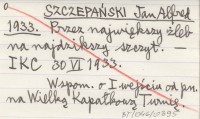 SZCZEPAŃSKI Jan Alfred
1933. Przez największy żleb
na najdzikszy szczyt. —
IKC 30 VI 1933.
Wspom. o I wejściu od pn.
na Wielką Kapałkową Turnię.